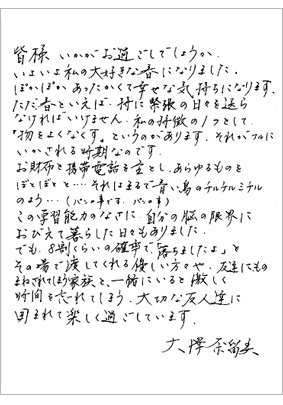 皆様 いかがお過ごしでしょうか.
いよいよ私の大好きな春になりました.
ぽかぽかあったかくて幸せな気持ちになります.
ただ、春といえば、特に緊張の日々を送ら
なければいけません. 私の特徴の1つとして.
「物をよくなくす」というのがあります. それがフルに
いかされる時期なのです.
お財布と携帯電話を主とし、あらゆるものを
ぽとぽとと…それはまるで青い鳥のチルチルミチル
のよう…(パンの事です。パンの事)
この学習能力のなさに、自分の脳の限界に
おびえて暮らした日々もありました.
でも、8割くらいの確率で「落ちましたよ」と
その場で渡してくれる優しい方々や、友達にもの
まねされてしまう家族と、一緒にいると激しく
時間を忘れてしまう、大切な友人達に
囲まれて楽しく過ごしています.
大澤奈留美